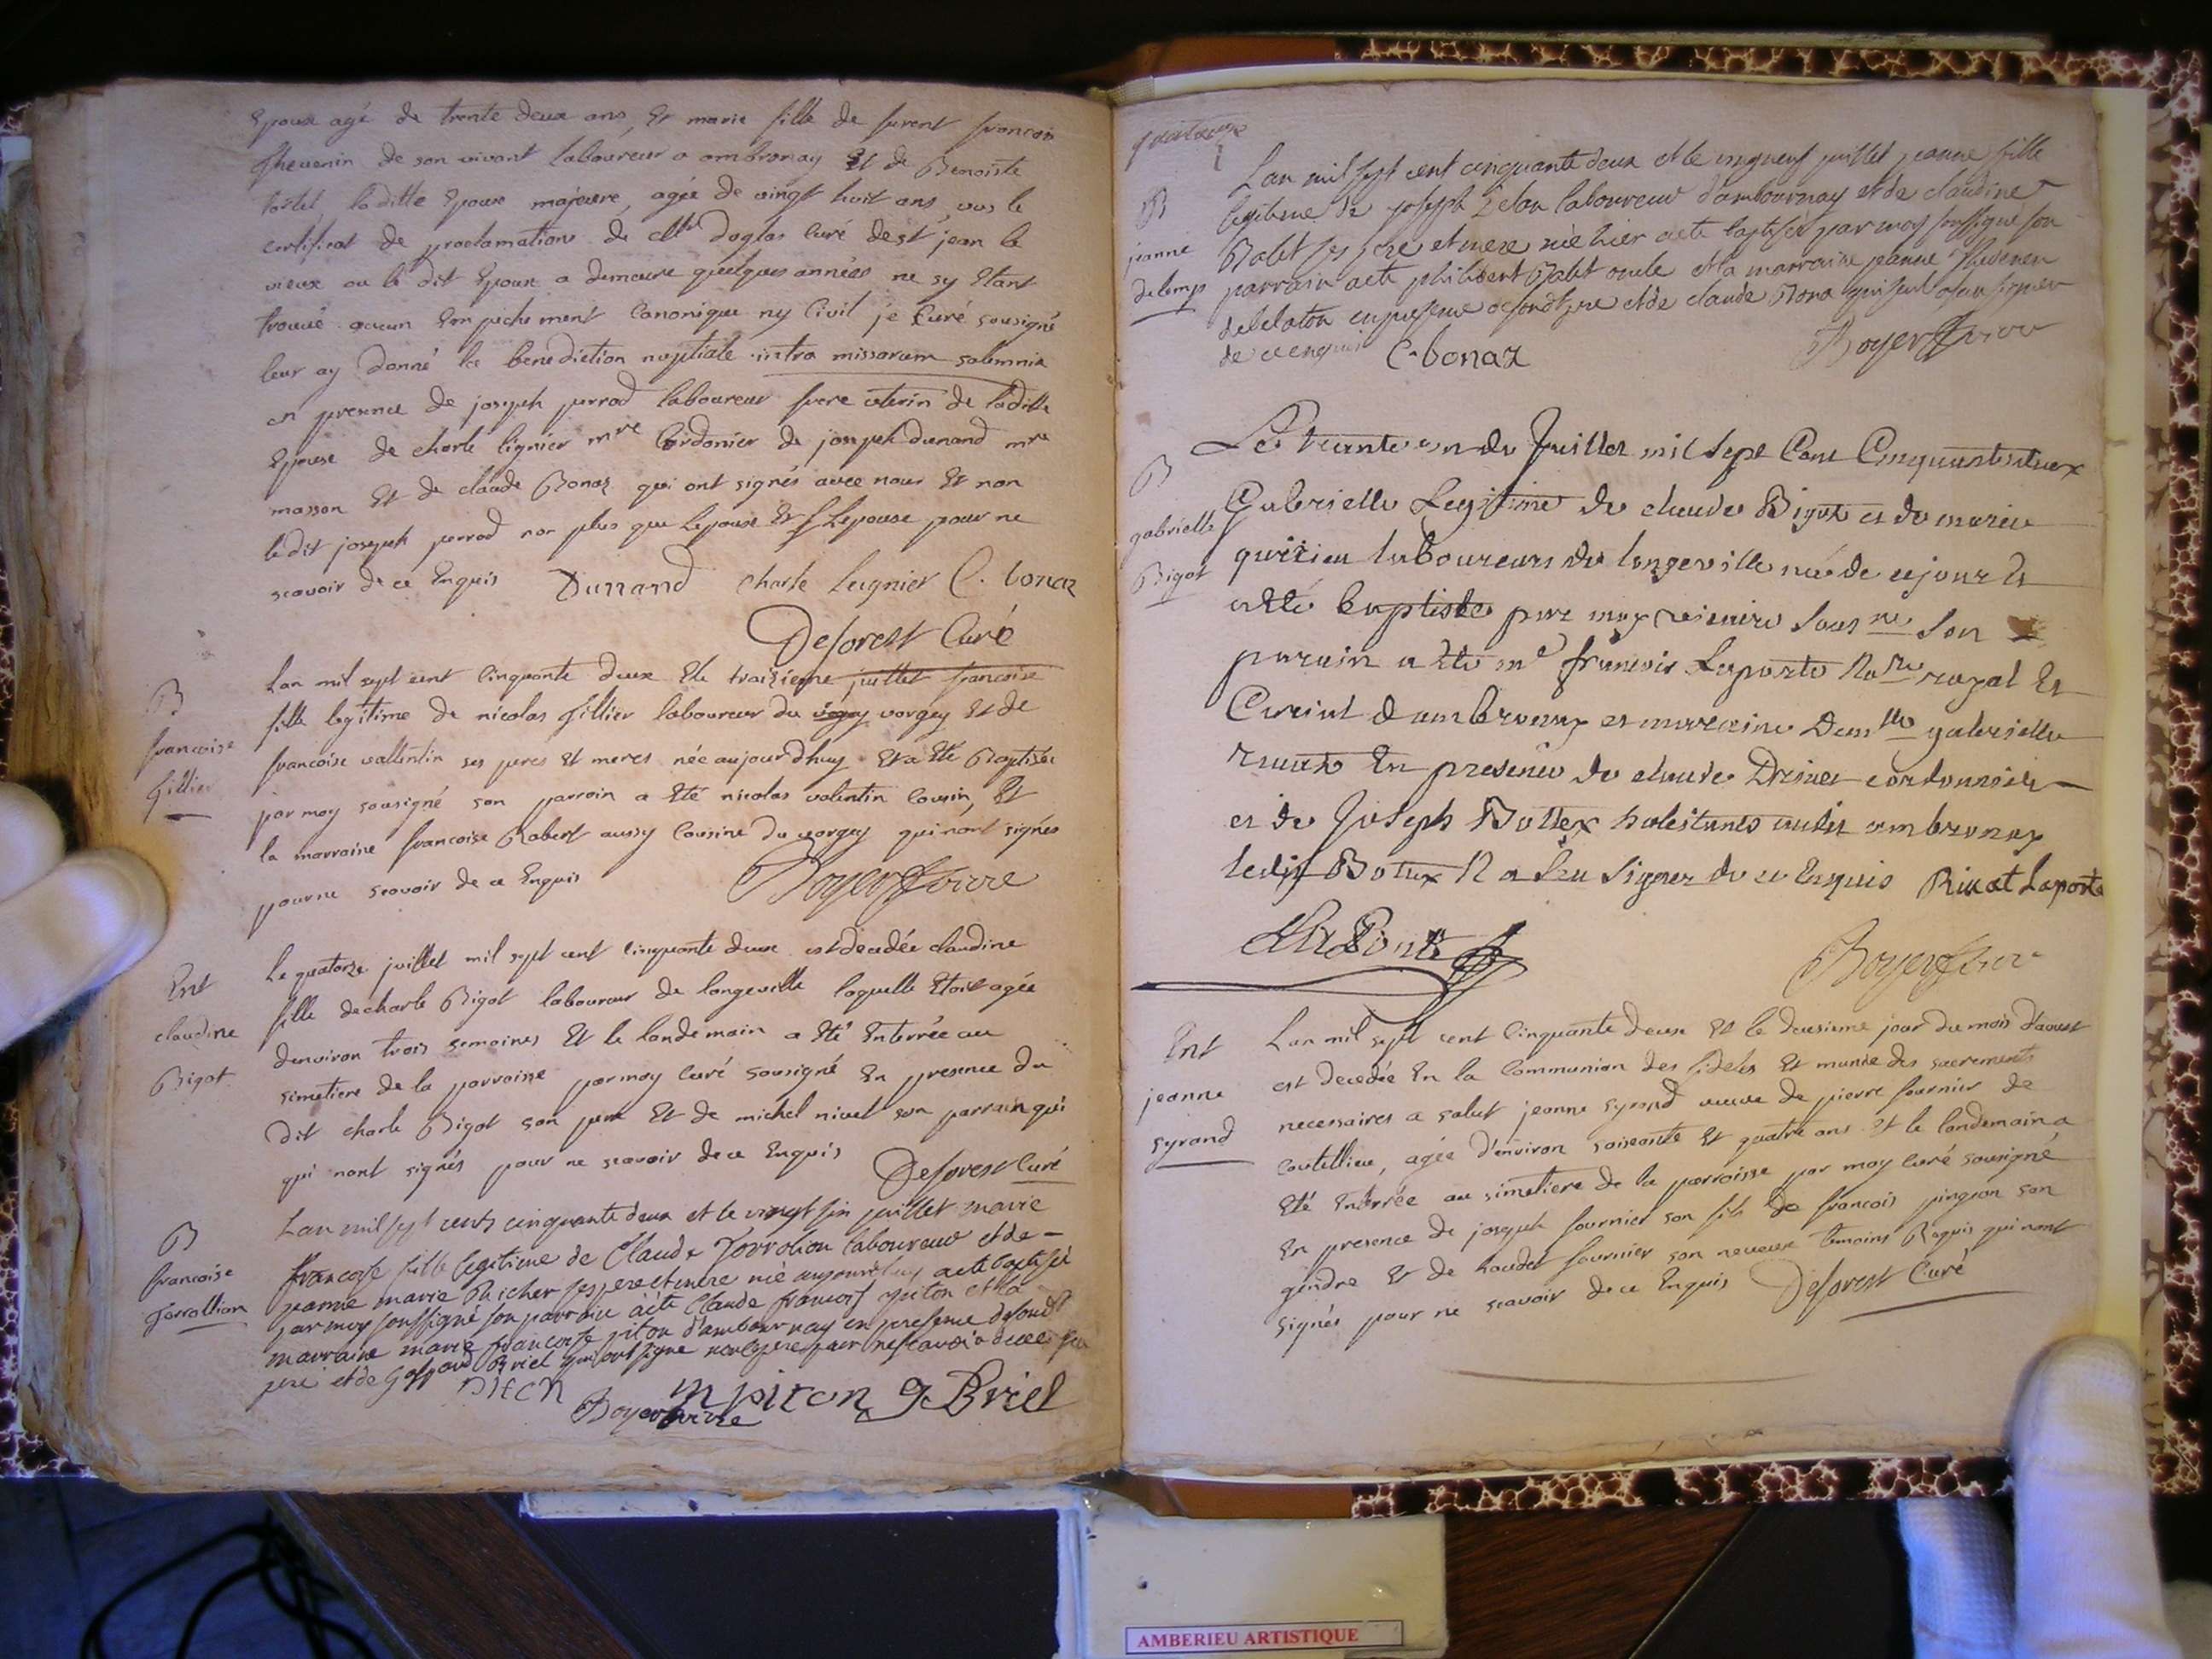 Epoux agé de trente deux ans, Et marie fille de furent françois
thevenin de son vivant laboureur a ambronay Et de Benoiste
laditte Epouse majeure, agée de vingt huit ans, vus le
certificat de proclamations de Mr Doglas Curé de st jean le
vieux ou le dit Epoux a demeuré quelques années ne sy Etant
trouvé aucun Empechement Canonique ny Civil je Curé sousigné
leur ay donné la benediction nuptiale intra missarum solemnia
en presence de joseph perrod laboureur frere uterin de laditte
Epouse de charle lignier mre Cordonier de joseph dunand mre
masson Et de claude Bonaz qui ont signés avec nous Et non
le dit joseph perrod non plus que lepoux Et lepouse pour ne
scavoir de ce Enquis Dunand Charle Lugnier C. bonaz
Deforest Curé
B
francoise
fillier
Lan mil sept cent Cinquante deux Et le traizieme juillet francoise
fille legitime de nicolas fillier laboureur du vorgey Et de
francoise vallentin ses peres Et meres née aujourdhuy Et a Eté Baptisée
par moy sousigné son parrain a Eté nicolas valentin Cousin, Et
la marraine francoise Robert aussy Cousine du vorgey qui nont signés
pour ne scavoir de ce Enquis Boyer vicre
Ent
claudine
Bigot
Le quatorze juillet mil sept cent Cinquante deux est decedée claudine
fille de charle Bigot laboureur de longeville laquelle Etoit agée
denviron trois semaines Et le landemain a Eté Enterrée au
simetiere de la parroisse par moy Curé sousigné En presence du
dit charle Bigot son pere Et de michel nivet son parrain qui
qui nont signés pour ne scavoir de ce Enquis Deforest Curé
B
francoise
Jorrollion
Lan mil sept cents cinquante deux et le vingt six juillet marie
francoise fille legitime de Claude Jorrolion laboureur et de
jeanne marie Richer ses pere et mere née aujourdhuy a eté baptisée
par moy soussigné son parrain a eté Claude francois piton et la
marraine marie francoise piton d'ambournay en presence de son dt
pere et de Gaspard Briel qui ont signé non le pere pour ne scavoir de ce
piton m piton g Briel
Boyer vicre
quatorze
B
jeanne
delemp
Lan mil sept cent cinquante deux et le vingneuf juillet jeanne fille
legitime de joseph laboureur d'ambournay et de claudine
Balet ses pere et mere née hier a eté baptisée par moy soussigné son
parrain a eté philibert Balet oncle et la marraine jeanne thevenin
en presence de son dt pere et de claude Bona qui seul a seu signer
de ce enquis C. bonaz Boyer vicre
B
gabrielle
Bigot
Le trante un de Juillet mil sept Cent Cinquante deux
Gabrielle Legitime de claude Bigot et de marie
laboureurs de longeville née de ce jour Et
a été baptisée par moy vicaire sous né son
parain a été me francois Laporte Nore royal Et
Curial dambronay et maraine Demlle gabrielle
rivat En presence de claude Drivet cordonnier
et de Joseph Bottex habitants audit ambronay
ledit Botex N a seu signer de ce Enquis Rivat Laporte
Boyer vicre
Ent
jeanne
syrand
Lan mil sept cent Cinquante deux Et le deusieme jour du mois d'aoust
est decedée En la Communion des fideles Et munie des sacrements
necessaires a salut jeanne syrand veuve de pierre fournier de
coutellieu, agée d'environ soixante Et quatre ans Et le landemain a
Eté Enterrée au simetiere de la parroisse par moy Curé sousigné
En presence de joseph fournier son fils de francois pingeon son
gendre Et de fournier son neveux temoins Requis qui nont
signés pour ne scavoir de ce Enquis Deforest Curé
AMBERIEU ARTISTIQUE